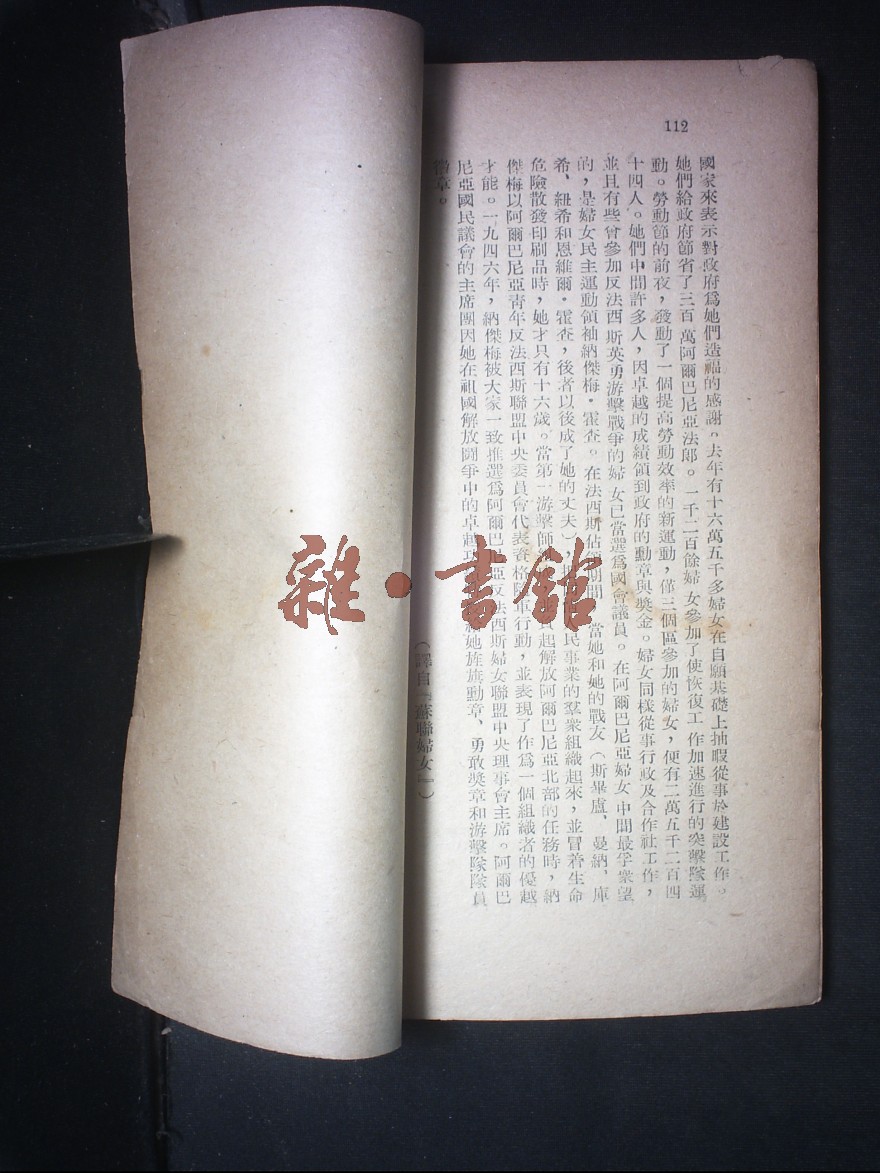 112
國家來表示對政府爲她們造福的感謝。去年有十六萬五千多婦女在自願基礎上抽暇從事於建設工作。
她們給政府節省了三百萬阿爾巴尼亞法郎。一千二百餘婦女參加了使恢復工作加速進行的突擊隊運
動。勞動節的前夜，發動了一個提高勞動效率的新運動，僅三個區參加的婦女，便有二萬五千二百四
十四人。她們中間許多人，因卓越的成績領到政府的勳章與獎金。婦女同樣從事行政及合作社工作，
並且有些曾參加反法西斯英勇游擊戰爭的婦女已當選爲國會議員。在阿爾巴尼亞婦女中間最孚衆望
的，是婦女民主運動領袖納傑梅·霍查。在法西斯佔領期間，當她和她的戰友（斯畢盧、曼納、庫
希、紐希和恩維爾·霍查，後者以後成了她的丈夫），民事業的羣衆組織起來，並冒着生命
危險散發印刷品時，她才只有十六歲。當第一游擊師起解放阿爾巴尼亞北部的任務時，納
傑梅以阿爾巴尼亞青年反法西斯聯盟中央委員會代表資格隨軍行動，並表現了作爲一個組織者的優越
才能。一九四六年，納傑梅被大家一致推選爲阿爾巴尼亞反法西斯婦女聯盟中央理事會主席。阿爾巴
尼亞國民議會的主席團因她在祖國解放鬪爭中的卓越她旌旗勳章、勇敢獎章和游擊隊隊員
徽章。
（譯自『蘇聯婦女』）
雜·書館